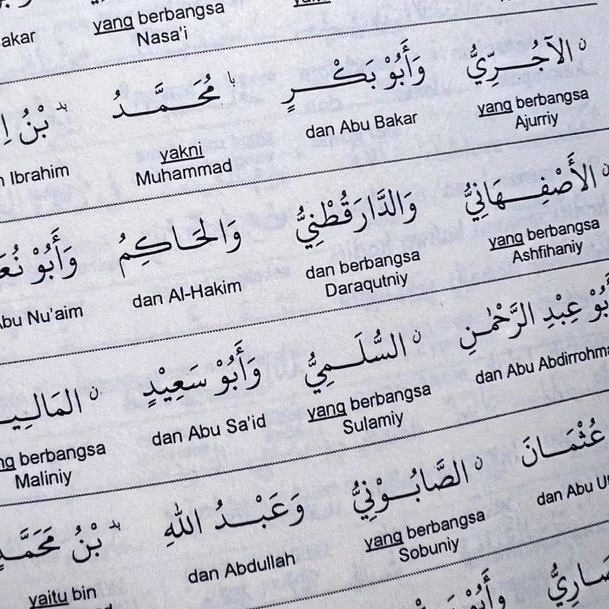 akar
yang berbangsa
Nasa'i
ن الآجُرِيُّ وَأَبُوْ بَكْرٍ مُحَمَّدُ بْنُ
yang berbangsa
Ajurriy
dan Abu Bakar
yakni
Muhammad
Ibrahim
ن الأَصْفِهَانِيُّ وَالدَّارَقُطْنِيُّ وَالحَاكِمُ وَأَبُوْ
yang berbangsa
Ashfihaniy
dan berbangsa
Daraqutniy
dan Al-Hakim
Abu Nu'aim
عَبْدِ الرَّحْمٰنِ ن السُّلَمِيُّ وَأَبُوْ سَعِيْدٍ ن
dan Abu Abdirrohma
yang berbangsa
Sulamiy
dan Abu Sa'id
berbangsa
Maliniy
عُثْمَانَ ن الصَّابُوْنِيُّ وَعَبْدُ اللهِ بْنُ
dan Abu U
yang berbangsa
Sobuniy
dan Abdullah
yaitu bin